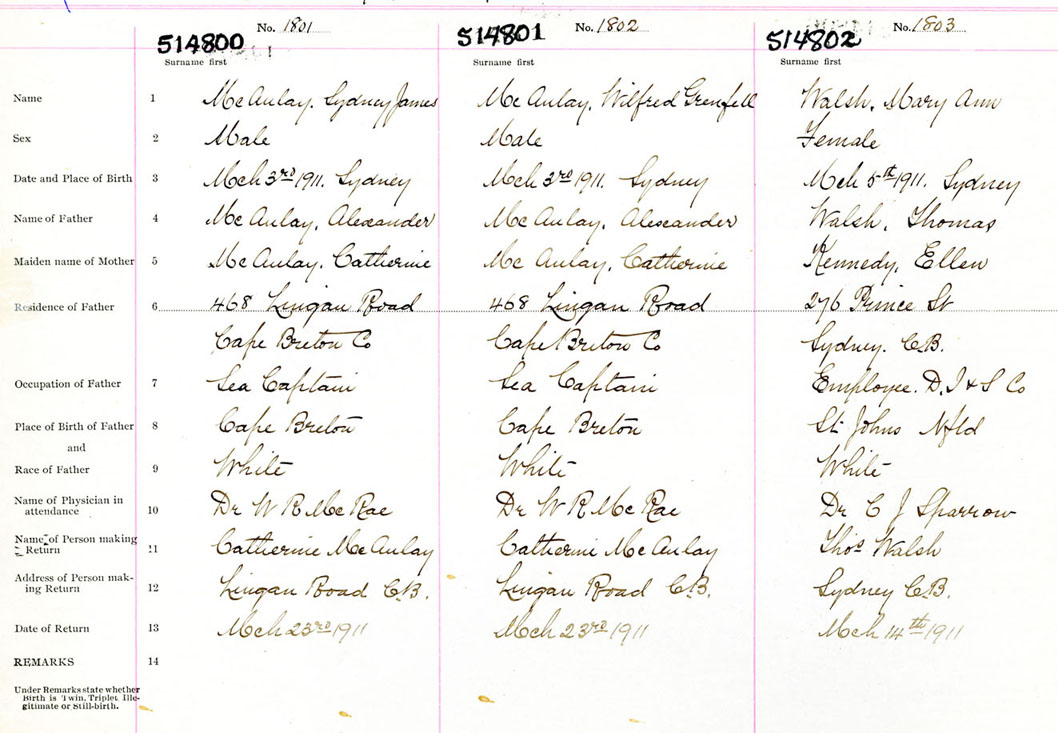 No. 1801 No. 1802 No. 1803
514800 514801 514802
Surname first Surname first Surname first
Name 1 McAulay, Sydney James Mc Aulay, Wilfred Grenfell Walsh, Mary Ann
Sex 2 Male Male Female
Date and Place of Birth 3 Mch 3rd 1911. Sydney Mch 3rd 1911. Sydney Mch 5th 1911. Sydney
Name of Father 4 Mc Aulay, Alexander Mc Aulay, Alexander Walsh, Thomas
Maiden name of Mother 5 McAulay, Catherine Mc Aulay, Catherine Kennedy, Ellen
Residence of Father 6 468 Lingan Road 468 Lingan Road 276 Prince St
Cape Breton Co Cape Breton Co Sydney. C.B.
Occupation of Father 7 Sea Captain Sea Captain Employee. D. I & S Co
Place of Birth of Father 8 Cape Breton Cape Breton St Johns Nfld
and
Race of Father 9 White White White
Name of Physician in
attendance 10 Dr W R McRae Dr W R McRae Dr C J Sparrow
Name of Person making
Return 11 Catherine McAulay Catherine McAulay Thos Walsh
Address of Person mak-
ing Return 12 Lingan Road C.B. Lingan Road C.B. Sydney C.B.
Date of Return 13 Mch 23rd 1911 Mch 23rd 1911 Mch 14th 1911
REMARKS 14
Under Remarks state whether
Birth is Twin, Triplet, Ille-
gitimate or Still-birth.